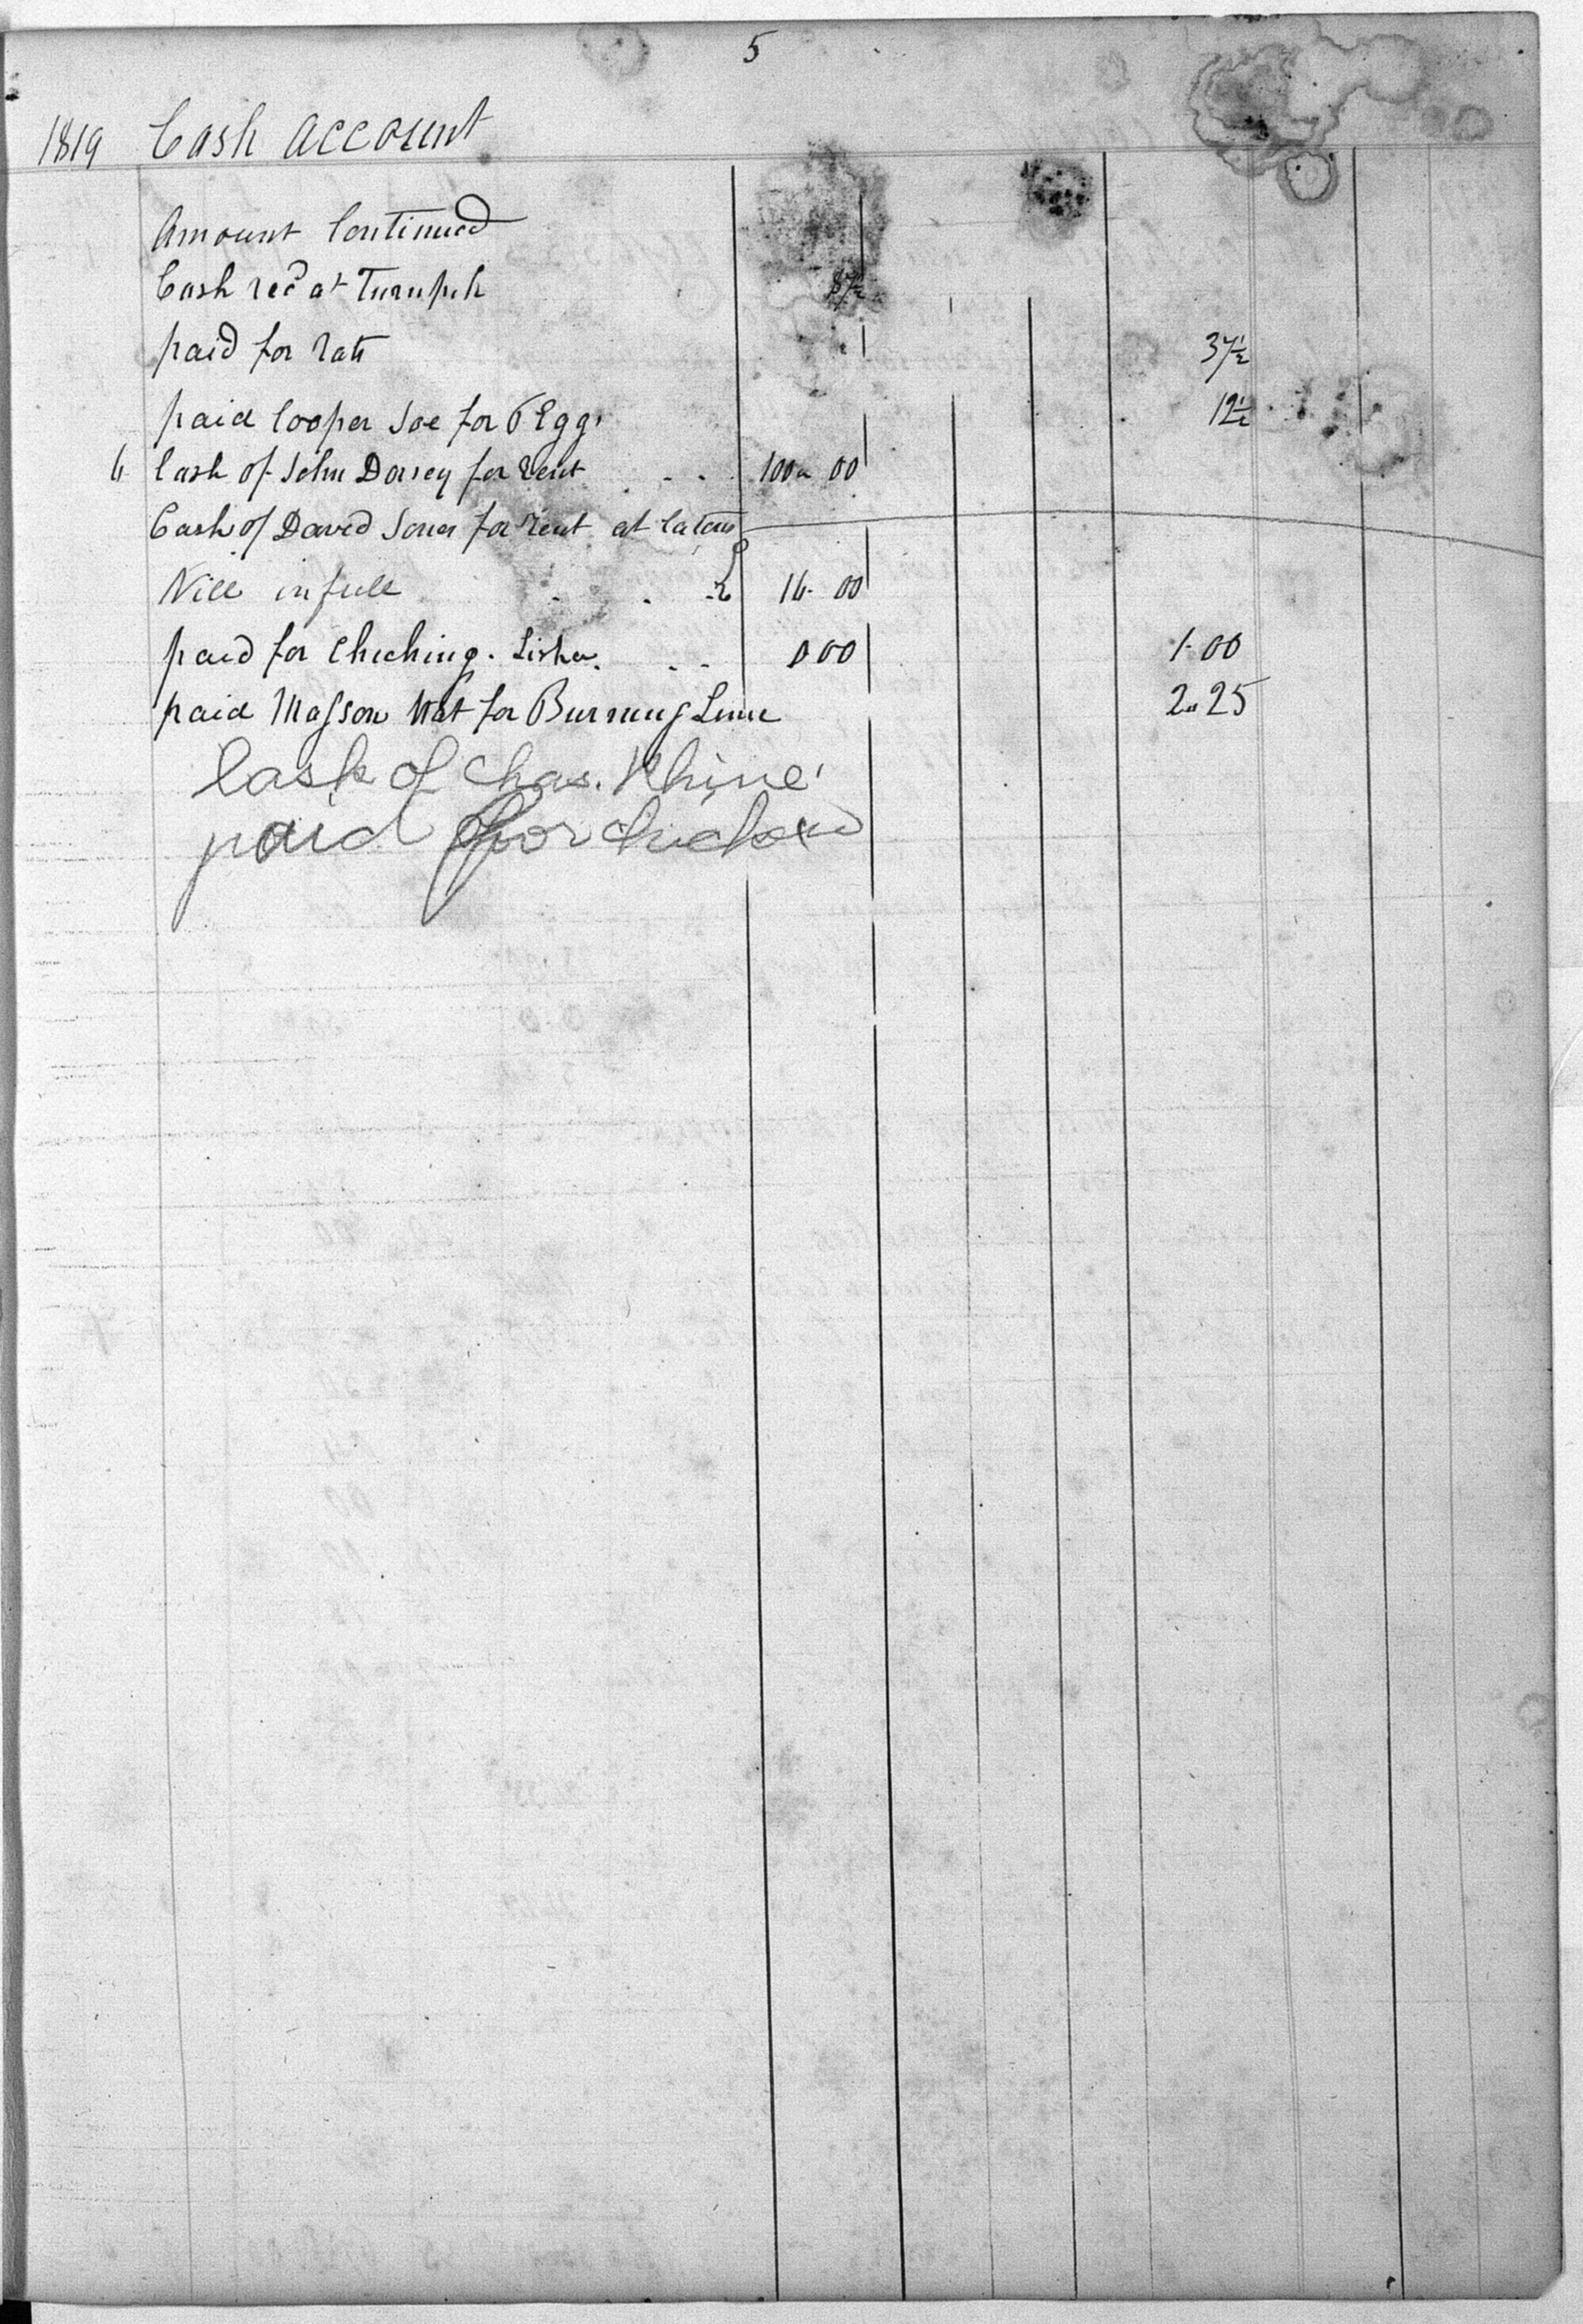 5
1819 Cash account
Amount Continued
Cash recd at Turnpik 87½
paid for rats 37½
paid Cooper Joe for Eggs 12½
6 Cash of John Dorsey for Rent 100 00
Cash of David Jones for rent at
Nill in full 16. 00
paid for 000 1.00
paid Masson Nat for Burning Lime 2.25
Cash of Chas. Rhine
paid for chicken